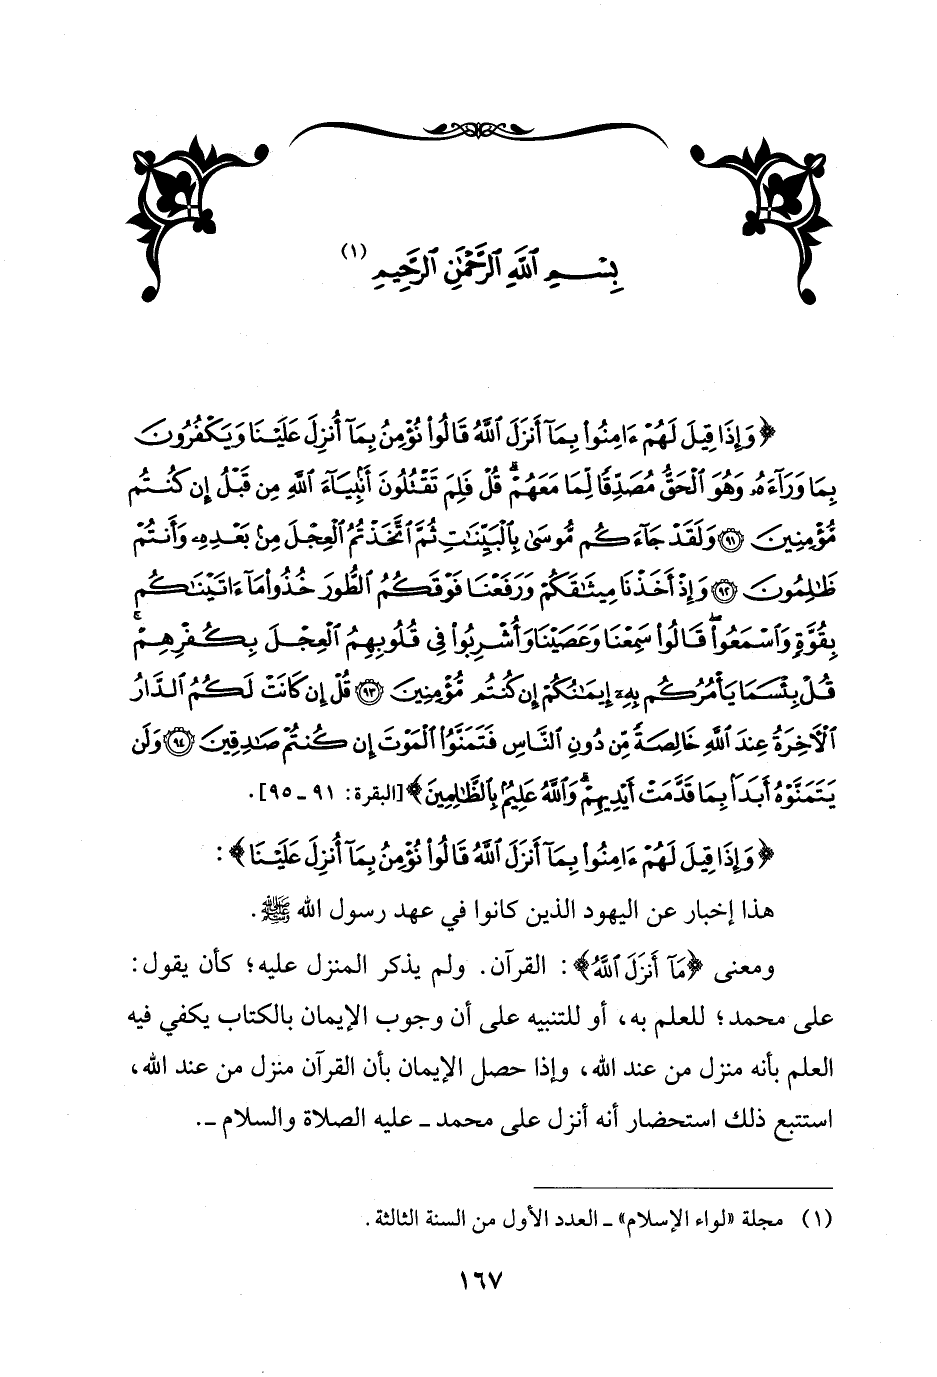 بِسْمِ ٱللَّهِ ٱلرَّحْمَٰنِ ٱلرَّحِيمِ (١)
﴿وَإِذَا قِيلَ لَهُمْ ءَامِنُوا۟ بِمَآ أَنزَلَ ٱللَّهُ قَالُوا۟ نُؤْمِنُ بِمَآ أُنزِلَ عَلَيْنَا وَيَكْفُرُونَ
بِمَا وَرَآءَهُۥ وَهُوَ ٱلْحَقُّ مُصَدِّقًا لِّمَا مَعَهُمْ ۗ قُلْ فَلِمَ تَقْتُلُونَ أَنۢبِيَآءَ ٱللَّهِ مِن قَبْلُ إِن كُنتُم
مُّؤْمِنِينَ ٩١ وَلَقَدْ جَآءَكُم مُّوسَىٰ بِٱلْبَيِّنَٰتِ ثُمَّ ٱتَّخَذْتُمُ ٱلْعِجْلَ مِنۢ بَعْدِهِۦ وَأَنتُمْ
ظَٰلِمُونَ ٩٢ وَإِذْ أَخَذْنَا مِيثَٰقَكُمْ وَرَفَعْنَا فَوْقَكُمُ ٱلطُّورَ خُذُوا۟ مَآ ءَاتَيْنَٰكُم
بِقُوَّةٍ وَٱسْمَعُوا۟ ۖ قَالُوا۟ سَمِعْنَا وَعَصَيْنَا وَأُشْرِبُوا۟ فِى قُلُوبِهِمُ ٱلْعِجْلَ بِكُفْرِهِمْ ۚ
قُلْ بِئْسَمَا يَأْمُرُكُم بِهِۦٓ إِيمَٰنُكُمْ إِن كُنتُم مُّؤْمِنِينَ ٩٣ قُلْ إِن كَانَتْ لَكُمُ ٱلدَّارُ
ٱلْءَاخِرَةُ عِندَ ٱللَّهِ خَالِصَةً مِّن دُونِ ٱلنَّاسِ فَتَمَنَّوُا۟ ٱلْمَوْتَ إِن كُنتُمْ صَٰدِقِينَ ٩٤ وَلَن
يَتَمَنَّوْهُ أَبَدًۢا بِمَا قَدَّمَتْ أَيْدِيهِمْ ۗ وَٱللَّهُ عَلِيمٌۢ بِٱلظَّٰلِمِينَ﴾ [البقرة: ٩١ ـ ٩٥].
﴿وَإِذَا قِيلَ لَهُمْ ءَامِنُوا۟ بِمَآ أَنزَلَ ٱللَّهُ قَالُوا۟ نُؤْمِنُ بِمَآ أُنزِلَ عَلَيْنَا﴾:
هذا إخبار عن اليهود الذين كانوا في عهد رسول الله ﷺ.
ومعنى ﴿مَآ أَنزَلَ ٱللَّهُ﴾: القرآن. ولم يذكر المنزل عليه؛ كأن يقول:
على محمد؛ للعلم به، أو للتنبيه على أن وجوب الإيمان بالكتاب يكفي فيه
العلم بأنه منزل من عند الله، وإذا حصل الإيمان بأن القرآن منزل من عند الله،
استتبع ذلك استحضار أنه أنزل على محمد ـ عليه الصلاة والسلام ـ.
(١) مجلة «لواء الإسلام» ـ العدد الأول من السنة الثالثة.
١٦٧